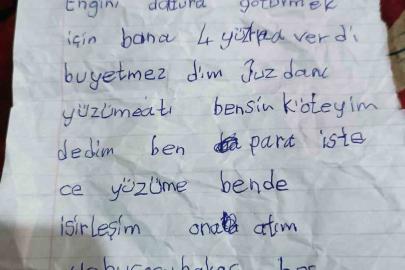 Engini datura götürmek
için bana 4 yüzlira verdi
buyetmez dim Juzdanı
yüzümeatı bensin kiöteyim
dedim ben para iste
ce yüzüme bende
isirleşim ona atım